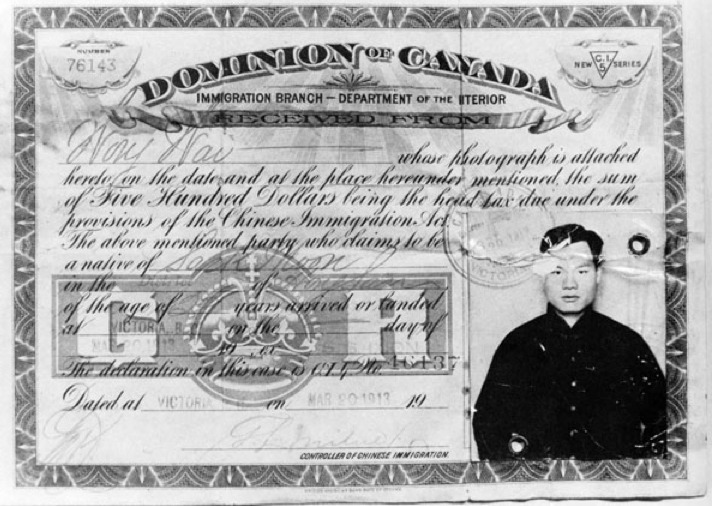 NUMBER
76143
DOMINION OF CANADA
NEW C.I. 5 SERIES
IMMIGRATION BRANCH — DEPARTMENT OF THE INTERIOR
RECEIVED FROM
Wong Wai
whose photograph is attached
hereto on the date and at the place hereunder mentioned, the sum
of Five Hundred Dollars being the head tax due under the
provisions of the Chinese Immigration Act.
The above mentioned party who claims to be
a native of
in the District of
of the age of years arrived or landed
at VICTORIA, B.C. on the day of
MAR 20 1913 19
The declaration in this case is C.I. 4 No. 46437
Dated at VICTORIA on MAR 20 1913 19
CONTROLLER OF CHINESE IMMIGRATION.
G R
VICTORIA